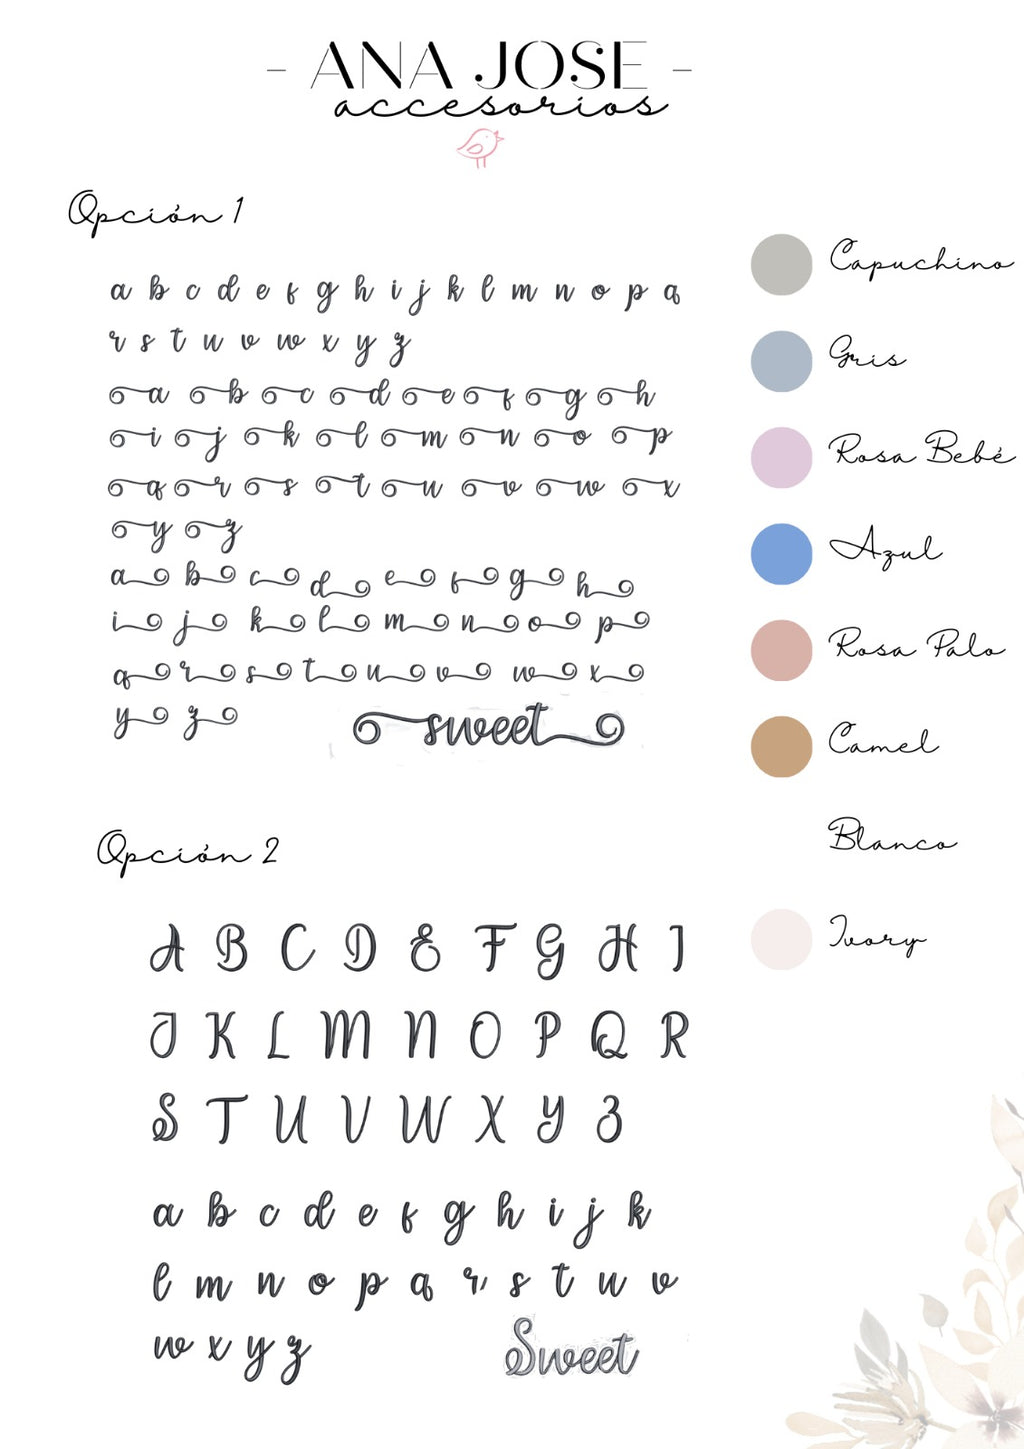 - ANA JOSE -
accesorios
Opción 1
a b c d e f g h i j k l m n o p q
r s t u v w x y z
a b c d e f g h
i j k l m n o p
q r s t u v w x
y z
a b c d e f g h
i j k l m n o p
q r s t u v w x
y z
sweet
Capuchino
Gris
Rosa Bebé
Azul
Rosa Palo
Camel
Blanco
Ivory
Opción 2
A B C D E F G H I
J K L M N O P Q R
S T U V W X Y Z
a b c d e f g h i j k
l m n o p q r s t u v
w x y z
Sweet